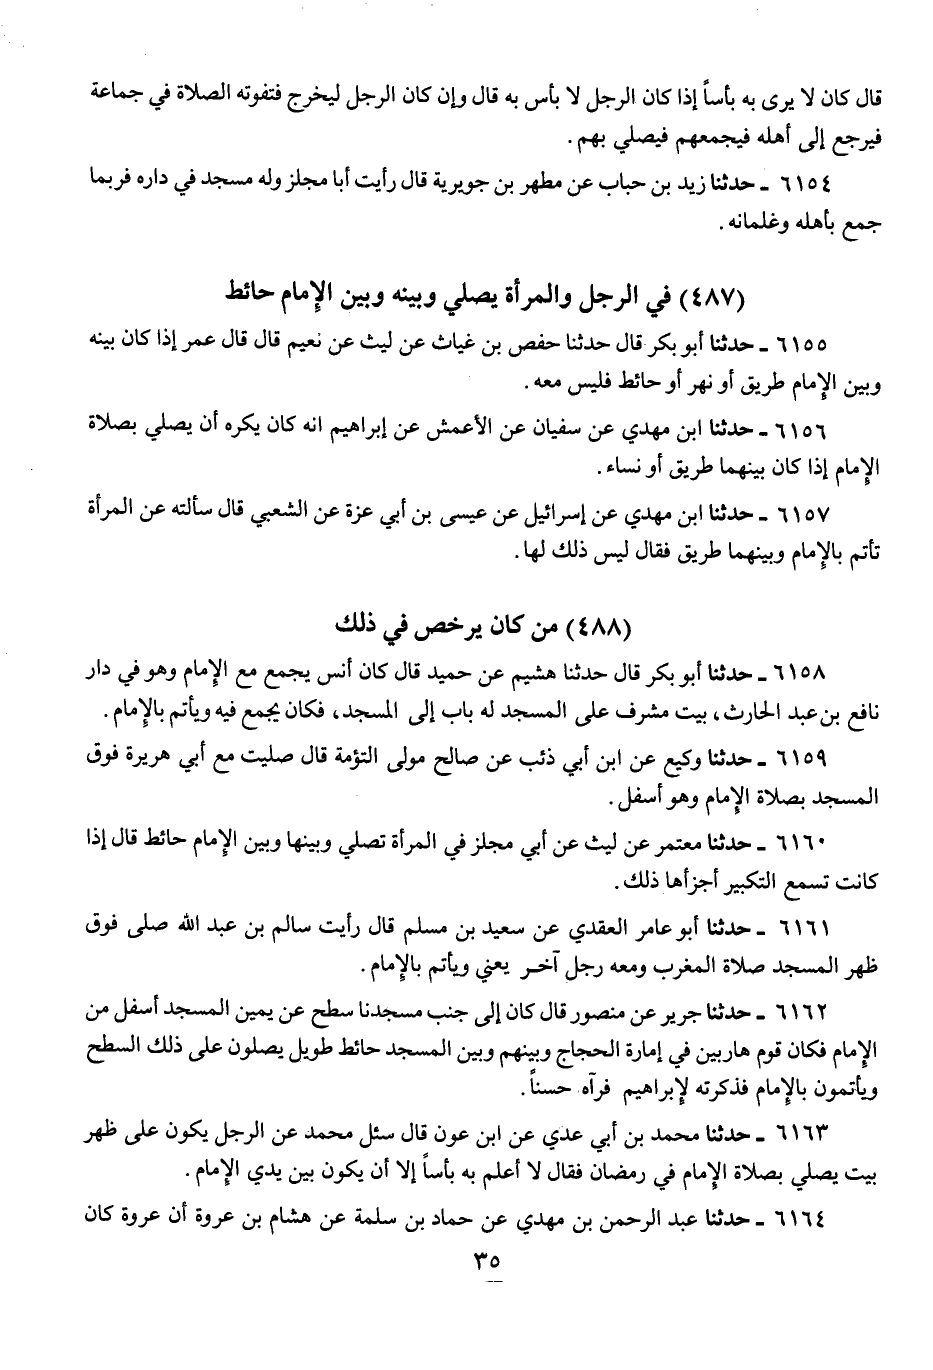 قال كان لا يرى به بأساً إذا كان الرجل لا بأس به قال وإن كان الرجل ليخرج فتفوته الصلاة في جماعة
فيرجع إلى أهله فيجمعهم فيصلي بهم .
٦١٥٤ ـ حدثنا زيد بن حباب عن مطهر بن جويرية قال رأيت أبا مجلز وله مسجد في داره فربما
جمع بأهله وغلمانه .
(٤٨٧) في الرجل والمرأة يصلي وبينه وبين الإمام حائط
٦١٥٥ ـ حدثنا أبو بكر قال حدثنا حفص بن غياث عن ليث عن نعيم قال قال عمر إذا كان بينه
وبين الإمام طريق أو نهر أو حائط فليس معه .
٦١٥٦ ـ حدثنا ابن مهدي عن سفيان عن الأعمش عن إبراهيم انه كان يكره أن يصلي بصلاة
الإمام إذا كان بينهما طريق أو نساء .
٦١٥٧ ـ حدثنا ابن مهدي عن إسرائيل عن عيسى بن أبي عزة عن الشعبي قال سألته عن المرأة
تأتم بالإمام وبينهما طريق فقال ليس ذلك لها .
(٤٨٨) من كان يرخص في ذلك
٦١٥٨ ـ حدثنا أبو بكر قال حدثنا هشيم عن حميد قال كان أنس يجمع مع الإمام وهو في دار
نافع بن عبد الحارث ، بيت مشرف على المسجد له باب إلى المسجد ، فكان يجمع فيه ويأتم بالإمام .
٦١٥٩ ـ حدثنا وكيع عن ابن أبي ذئب عن صالح مولى التؤمة قال صليت مع أبي هريرة فوق
المسجد بصلاة الإمام وهو أسفل .
٦١٦٠ ـ حدثنا معتمر عن ليث عن أبي مجلز في المرأة تصلي وبينها وبين الإمام حائط قال إذا
كانت تسمع التكبير أجزأها ذلك .
٦١٦١ ـ حدثنا أبو عامر العقدي عن سعيد بن مسلم قال رأيت سالم بن عبد الله صلى فوق
ظهر المسجد صلاة المغرب ومعه رجل آخر يعني ويأتم بالإمام .
٦١٦٢ ـ حدثنا جرير عن منصور قال كان إلى جنب مسجدنا سطح عن يمين المسجد أسفل من
الإمام فكان قوم هاربين في إمارة الحجاج وبينهم وبين المسجد حائط طويل يصلون على ذلك السطح
ويأتمون بالإمام فذكرته لإبراهيم فرآه حسناً .
٦١٦٣ ـ حدثنا محمد بن أبي عدي عن ابن عون قال سئل محمد عن الرجل يكون على ظهر
بيت يصلي بصلاة الإمام في رمضان فقال لا أعلم به بأساً إلا أن يكون بين يدي الإمام .
٦١٦٤ ـ حدثنا عبد الرحمن بن مهدي عن حماد بن سلمة عن هشام بن عروة أن عروة كان
٣٥